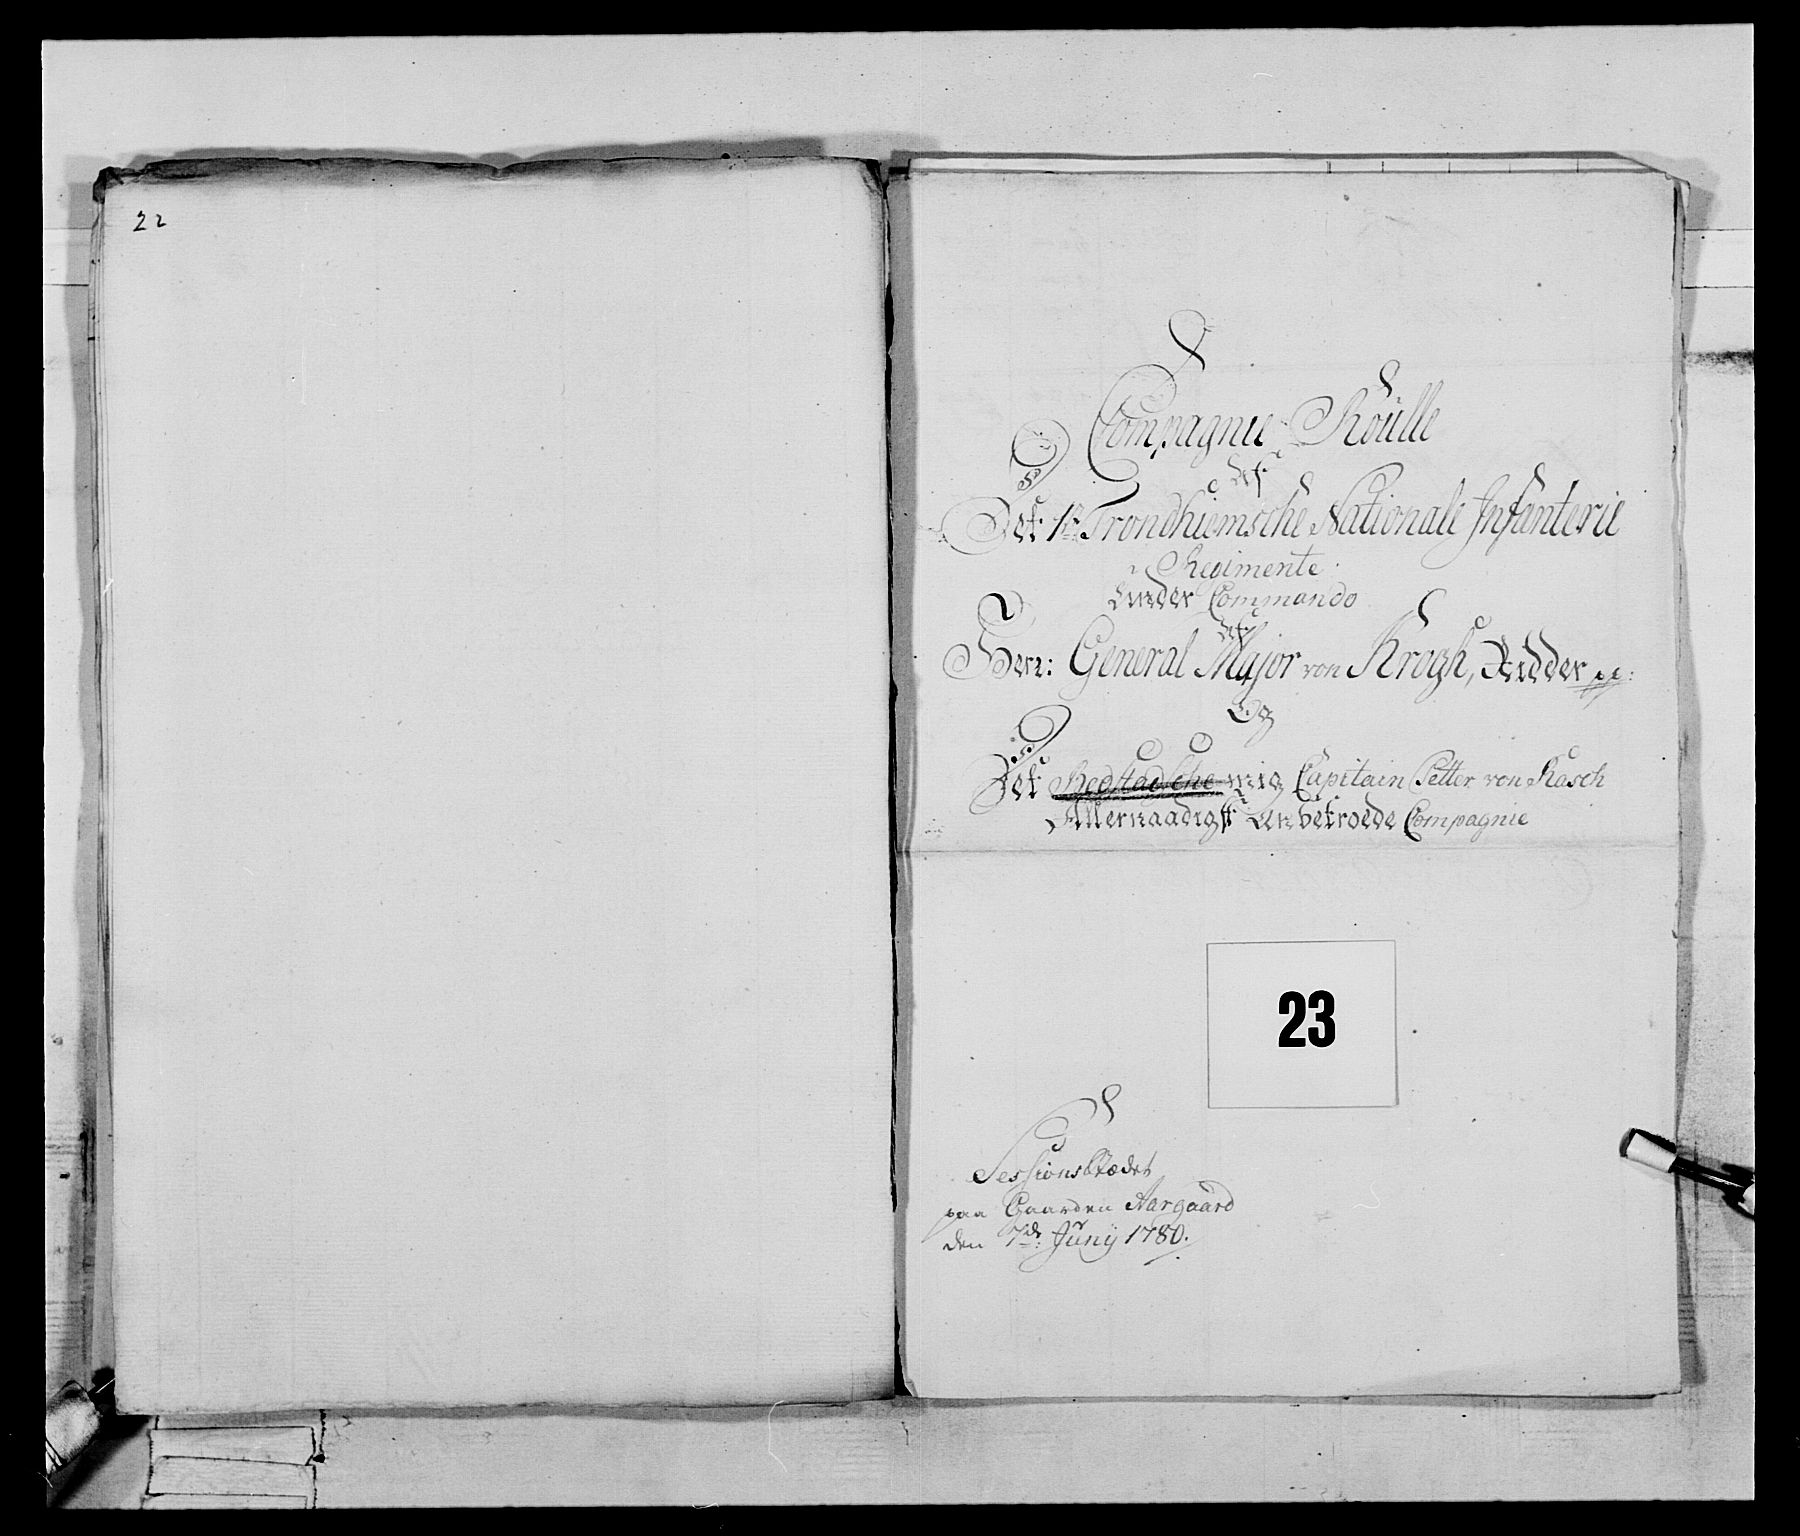 22
Compagnie Roulle
af
Det 1te Trondhiemsche Nationale Infanterie
Regimente
Under Commando
af
Herr: General Major von Krogh, Ridder pp:
Og
Det Hedstadsche mig Capitain Petter von Kasch
Allernaadigst anbetroede Compagnie
23
Sessions Stædet
paa Gaarden Aargaard
den 7de Juny 1780.